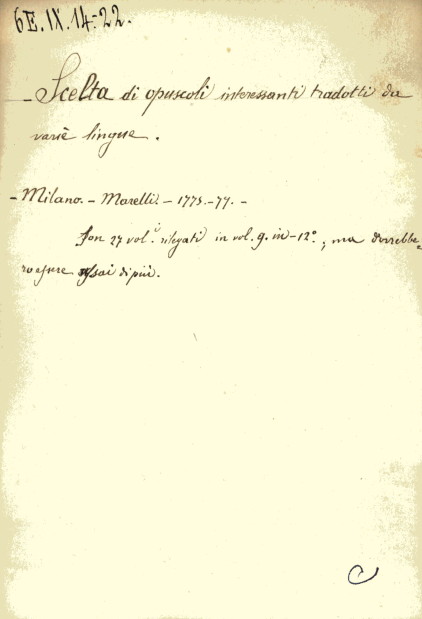 6E.IX.14-22.
- Scelta di opuscoli interessanti tradotti da
varie lingue.
- Milano. - Marelli. - 1775.-77. -
Son 27 vol.i rilegati in vol. 9. in-12°; ma dovrebbe=
ro essere assai di più.
C